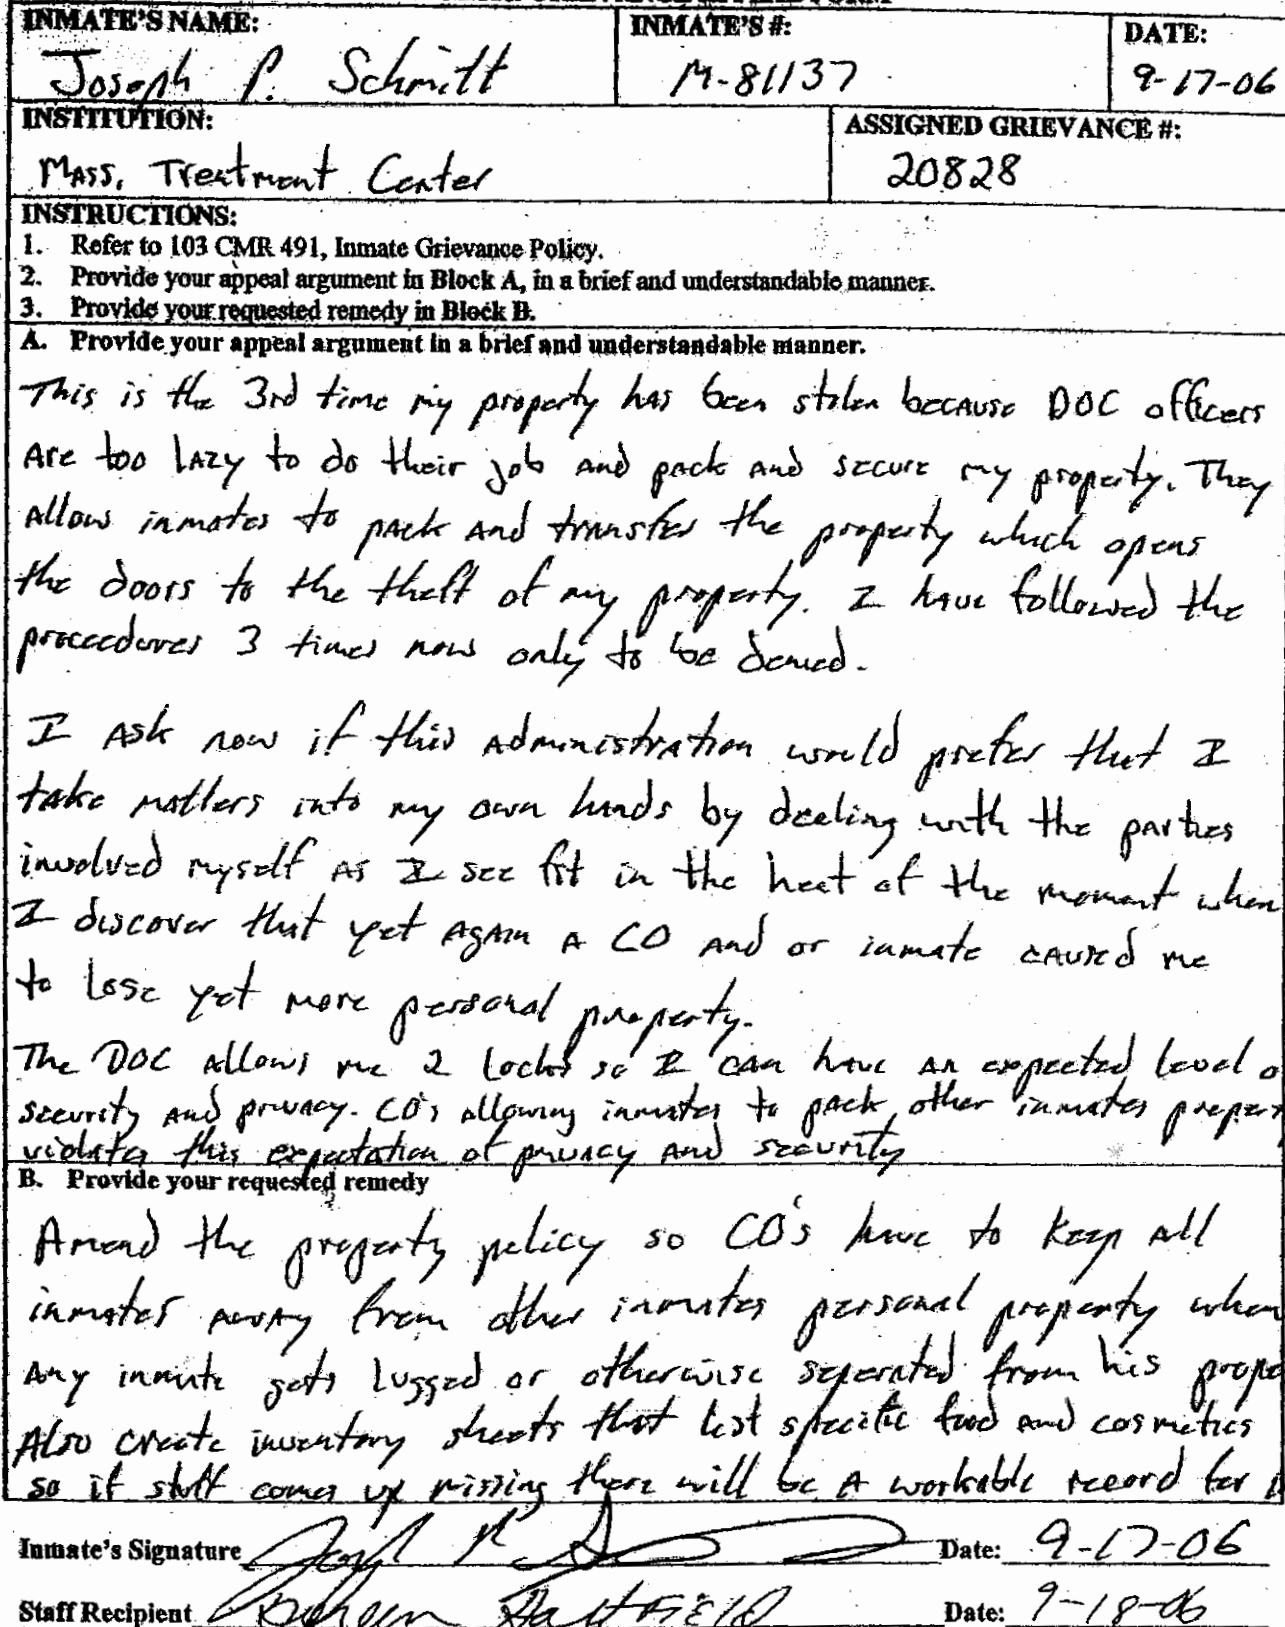 INMATE'S NAME: INMATE'S #: DATE:
Joseph P. Schmitt M-81137 9-17-06
INSTITUTION: ASSIGNED GRIEVANCE #:
Mass. Treatment Center 20828
INSTRUCTIONS:
1. Refer to 103 CMR 491, Inmate Grievance Policy.
2. Provide your appeal argument in Block A, in a brief and understandable manner.
3. Provide your requested remedy in Block B.
A. Provide your appeal argument in a brief and understandable manner.
This is the 3rd time my property has been stolen because DOC officers
Are too lazy to do their job and pack and secure my property. They
allow inmates to pack and transfer the property which opens
the doors to the theft of my property. I have followed the
proceedures 3 times now only to be denied.
I ask now if this administration would prefer that I
take matters into my own hands by dealing with the parties
involved myself as I see fit in the heat of the moment when
I discover that yet again a CO and or inmate caused me
to lose yet more personal property.
The DOC allows me 2 Locks so I can have an expected level o
security and privacy. CO's allowing inmates to pack other inmates proper
violates this expectation of privacy and security
B. Provide your requested remedy
Amend the property policy so CO's have to keep all
inmates away from other inmates personal property when
any inmate gets lugged or otherwise seperated from his prope
Also create inventory sheets that list specific food and cosmetics
so if stuff comes up missing there will be a workable record for
Inmate's Signature Date: 9-17-06
Staff Recipient Date: 9-18-06